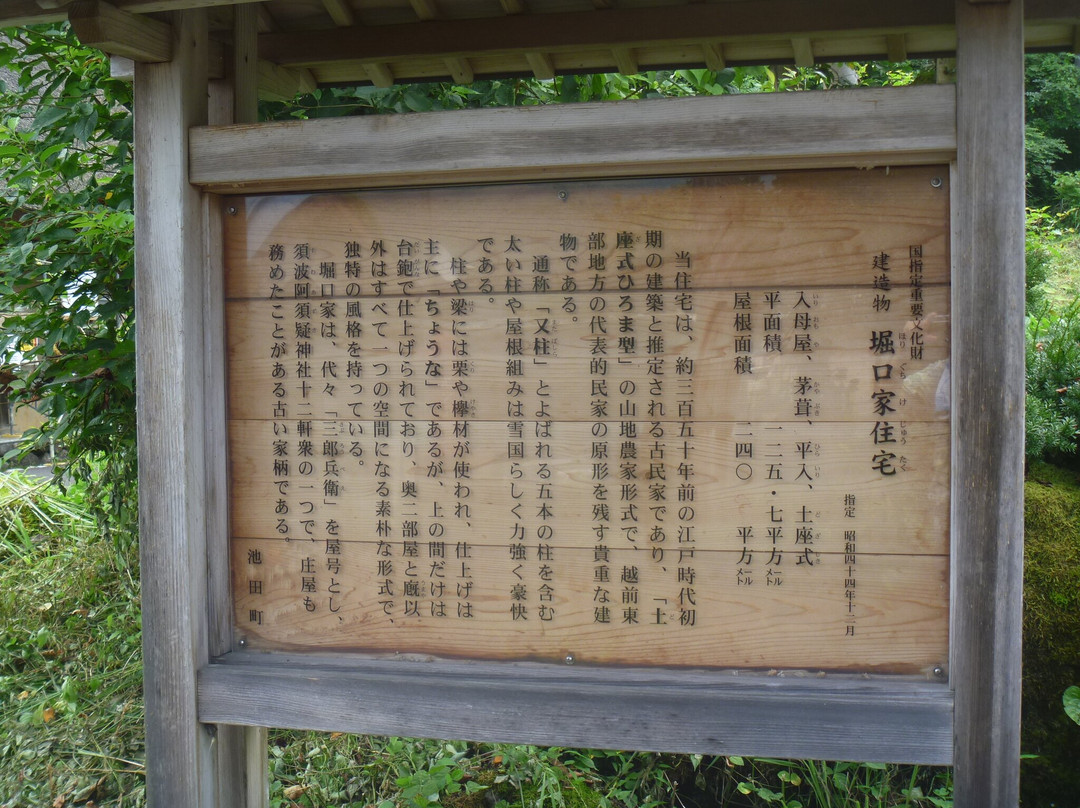 国指定重要文化財
建造物 堀口家住宅
指定 昭和四十四年十二月
入母屋、茅葺、平入、土座式
平面積 一二五・七平方メートル
屋根面積 二四〇 平方メートル
当住宅は、約三百五十年前の江戸時代初
期の建築と推定される古民家であり、「土
座式ひろま型」の山地農家形式で、越前東
部地方の代表的民家の原形を残す貴重な建
物である。
通称「又柱」とよばれる五本の柱を含む
太い柱や屋根組みは雪国らしく力強く豪快
である。
柱や梁には栗や欅材が使われ、仕上げは
主に「ちょうな」であるが、上の間だけは
台鉋で仕上げられており、奥二部屋と廐以
外はすべて一つの空間になる素朴な形式で、
独特の風格を持っている。
堀口家は、代々「三郎兵衛」を屋号とし、
須波阿須疑神社十二軒衆の一つで、庄屋も
務めたことがある古い家柄である。
池田町